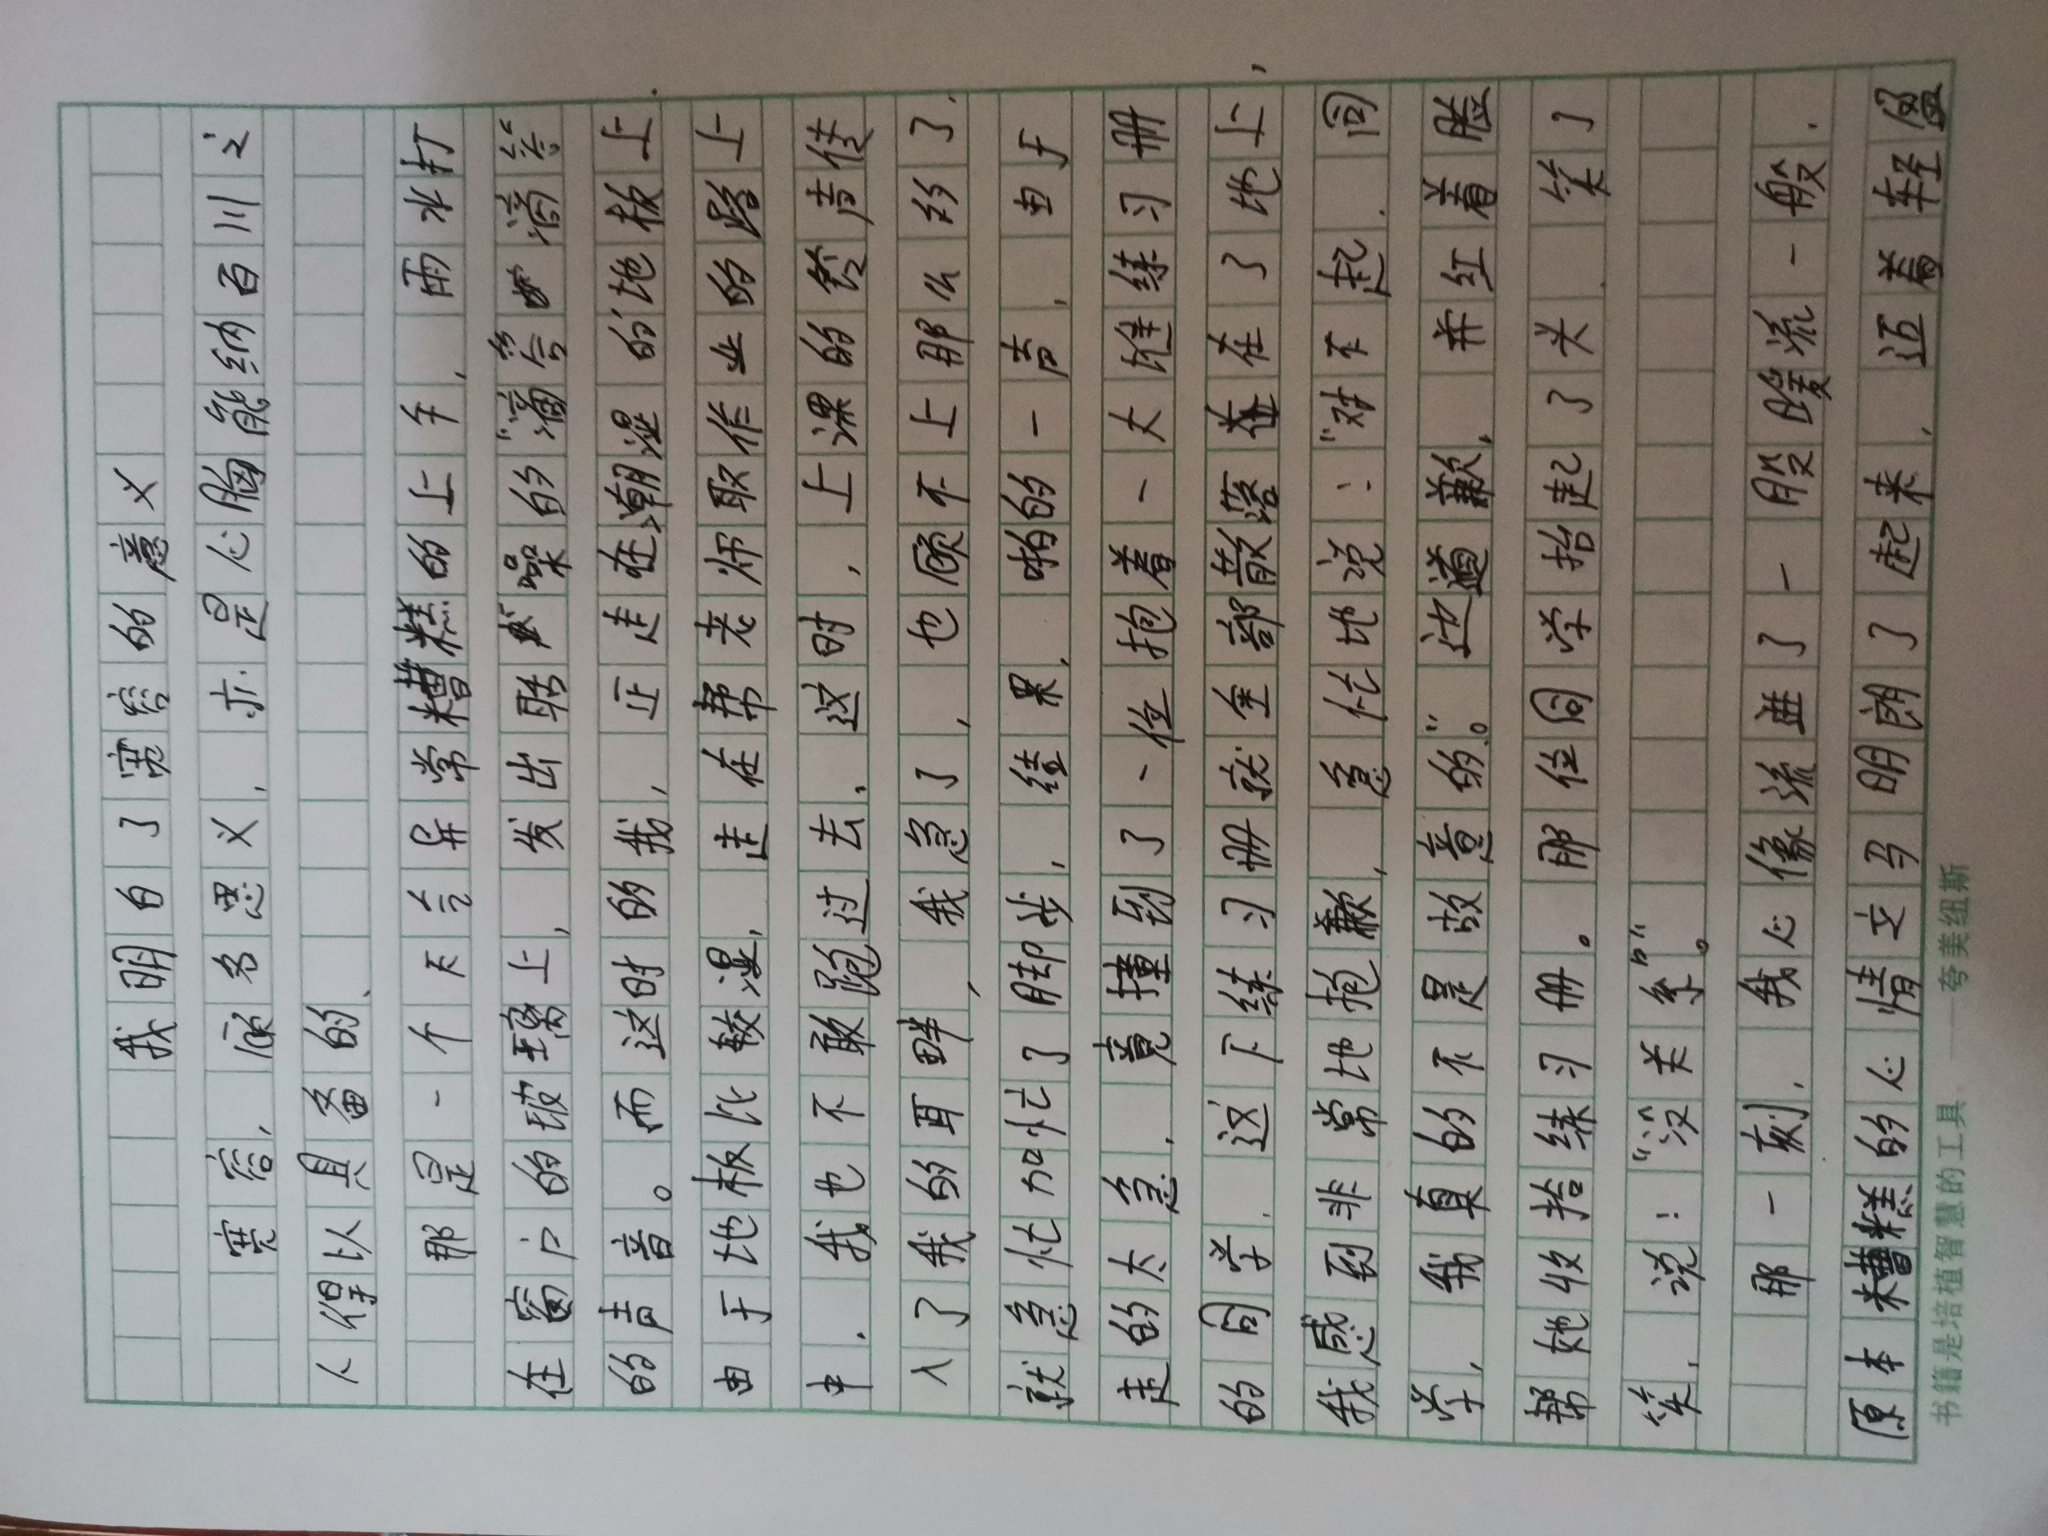 我明白了宽容的意义
宽容，顾名思义，亦是心胸能纳百川之
人得以具备的、
那是一个不言异常糟糕的上午，雨水打
在窗户的玻璃上，发出聒噪的“滴答滴答”
的声音。而这时的我，正走在潮湿的地板上，
由于地板比较湿，走在帮老师取作业的路上
中，我也不敢跑过去，这时，上课的铃声传
入了我的耳畔，我急了，也顾不上那么多了，
就急忙加忙了脚步，结果，啪的一声，由于
走的太急，竟撞到了一位抱着一大堆练习册
的同学，这下练习册就全部散落在在了地上，
我感到非常地抱歉，急忙地说：“对不起，同
学，我真的不是故意的。”边道歉，并红着脸
帮她收拾练习册。那位同学抬起了头，笑了
笑，说：“没关系”。
那一刻，我心像流进了一股暖流一般，
原本糟糕的心情立马明朗了起来，迈着轻盈
书籍是培植智慧的工具 ——夸美纽斯